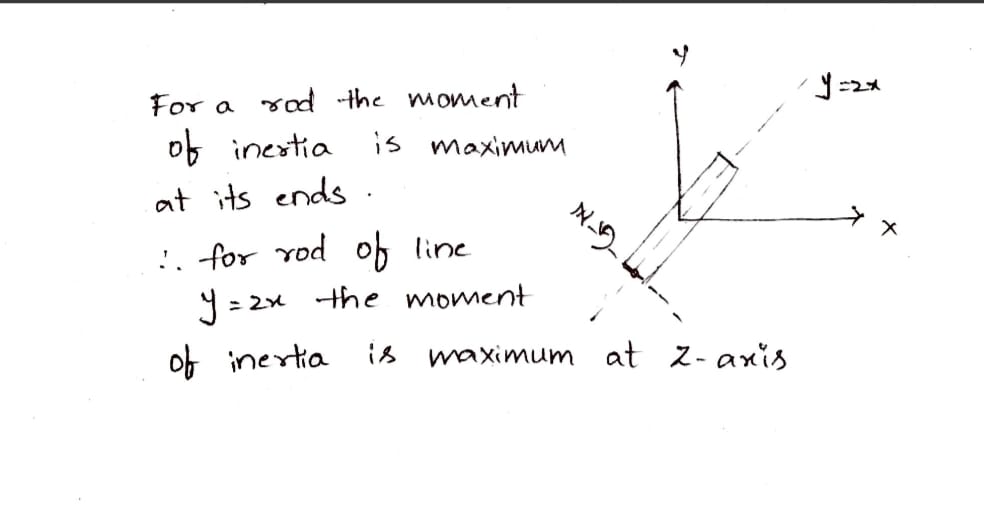 For a rod the moment
of inertia is maximum
at its ends .
∴ for rod of line
y = 2x the moment
of inertia is maximum at z-axis
y
y=2x
x